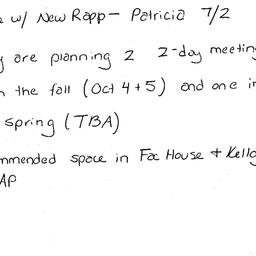 w/ New Rapp - Patricia 7/2
are planning 2 2-day meeting
the fall (Oct 4+5) and one in
spring (TBA)
mmended space in Fac House + Kello
AP